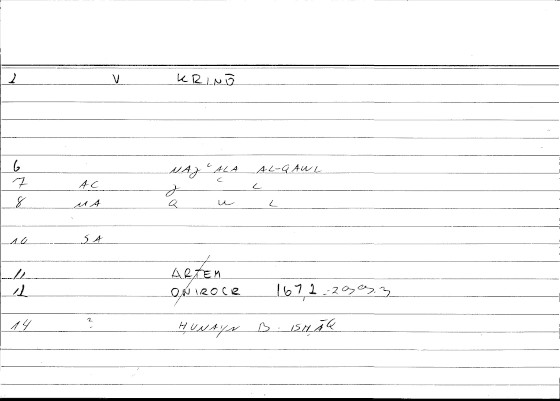 1 V KRINŌ
6 NAẒ ʿALA AL-QAWL
7 AC ẓ ʿ L
8 MA Q W L
10 SA
11 ARTEM
12 ONIROCR 167,1
14 ? HUNAYN B. ISHĀQ